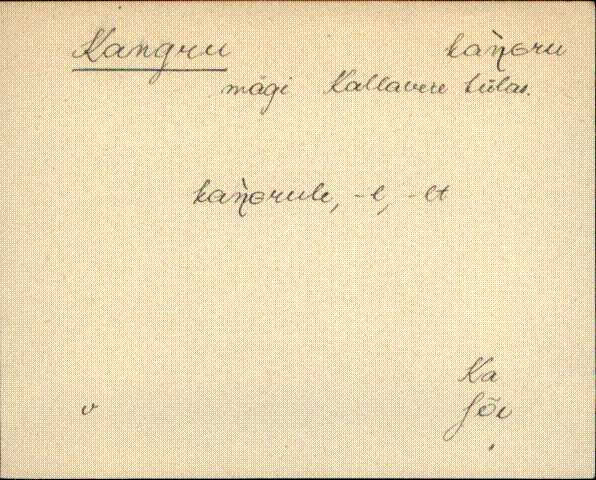 Kangru kaŋ̀ɢru
mägi Kallavere külas.
kaŋ̀ɢrule, -l, -lt
Ka
v Jõe